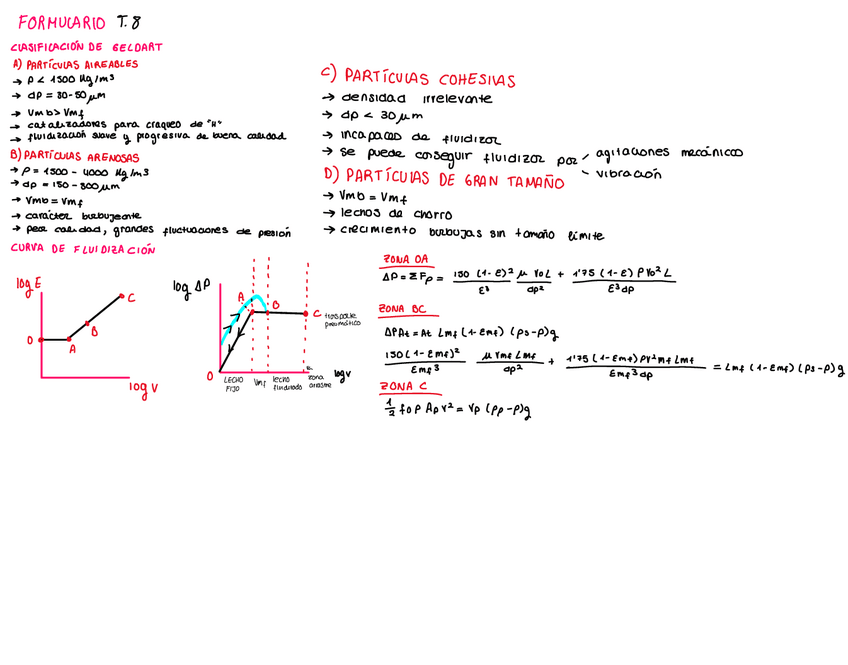 FORMULARIO T.8
CLASIFICACIÓN DE GELDART
A) PARTÍCULAS AIREABLES
→ ρ < 1500 Kg/m³
→ dp = 30-50 μm
→ Vmb > Vmf
→ catalizadores para craqueo de "H"
→ fluidización suave y progresiva de buena calidad
B) PARTÍCULAS ARENOSAS
→ ρ = 1500 - 4000 Kg/m3
→ dp = 150 - 500 μm
→ Vmb = Vmf
→ carácter burbujeante
→ peor calidad, grandes fluctuaciones de presión
C) PARTÍCULAS COHESIVAS
→ densidad irrelevante
→ dp < 30 μm
→ Incapaces de fluidizar
→ se puede conseguir fluidizar por
agitaciones mecánicas
vibración
D) PARTÍCULAS DE GRAN TAMAÑO
→ Vmb = Vmf
→ lechos de chorro
→ crecimiento burbujas sin tamaño límite
CURVA DE FLUIDIZACIÓN
log ε
O
A
B
C
log v
log ΔP
A
B
C transporte
pneumático
O
LECHO
FIJO
Vmf
lecho
fluidizado
zona
arrastre
log v
ZONA OA
ΔP = Σ Fp = 150 (1-ε)² / ε³ μ v₀ L / dp² + 1'75 (1-ε) ρ v₀² L / ε³ dp
ZONA BC
ΔP At = At Lmf (1-εmf) (ρs-ρ)g
150 (1-εmf)² / εmf³ μ Vmf Lmf / dp² + 1'75 (1-εmf) ρ v²mf Lmf / εmf³ dp = Lmf (1-εmf) (ρs-ρ)g
ZONA C
1/2 f₀ ρ Ap v² = Vp (ρp-ρ)g